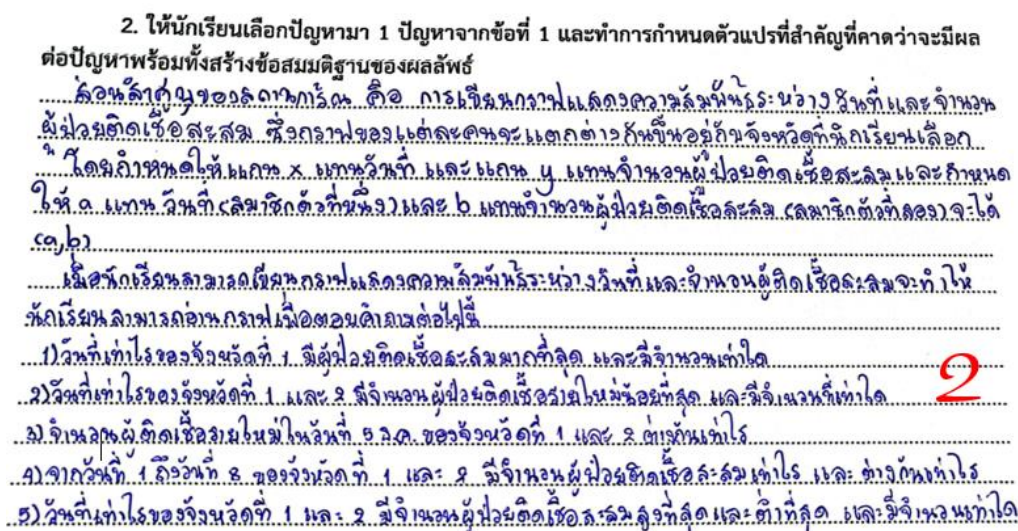 2. ให้นักเรียนเลือกปัญหามา 1 ปัญหาจากข้อที่ 1 และทำการกำหนดตัวแปรที่สำคัญที่คาดว่าจะมีผล
ต่อปัญหาพร้อมทั้งสร้างข้อสมมติฐานของผลลัพธ์
ส่วนสำคัญของสถานการณ์ คือ การเขียนกราฟแสดงความสัมพันธ์ระหว่างวันที่และจำนวน
ผู้ป่วยติดเชื้อสะสม ซึ่งกราฟของแต่ละคนจะแตกต่างกันขึ้นอยู่กับจังหวัดที่นักเรียนเลือก
โดยกำหนดให้แกน x แทนวันที่ และแกน y แทนจำนวนผู้ป่วยติดเชื้อสะสมและกำหนด
ให้ a แทน วันที่ (สมาชิกตัวที่หนึ่ง) และ b แทนจำนวนผู้ป่วยติดเชื้อสะสม (สมาชิกตัวที่สอง) จะได้
(a,b)
เมื่อนักเรียนสามารถเขียนกราฟแสดงความสัมพันธ์ระหว่างวันที่และจำนวนผู้ติดเชื้อสะสมจะทำให้
นักเรียนสามารถอ่านกราฟเพื่อตอบคำถามต่อไปนี้
1) วันที่เท่าไรของจังหวัดที่ 1 มีผู้ป่วยติดเชื้อสะสมมากที่สุด และมีจำนวนเท่าใด
2) วันที่เท่าไรของจังหวัดที่ 1 และ 2 มีจำนวนผู้ป่วยติดเชื้อรายใหม่น้อยที่สุด และมีจำนวนที่เท่าใด
2
3) จำนวนผู้ติดเชื้อรายใหม่ในวันที่ 5 ธ.ค. ของจังหวัดที่ 1 และ 2 ต่างกันเท่าไร
4) จากวันที่ 1 ถึงวันที่ 8 ของจังหวัดที่ 1 และ 2 มีจำนวนผู้ป่วยติดเชื้อสะสมเท่าไร และ ต่างกันเท่าไร
5) วันที่เท่าไรของจังหวัดที่ 1 และ 2 มีจำนวนผู้ป่วยติดเชื้อสะสมสูงที่สุดและต่ำที่สุด และมีจำนวนเท่าใด